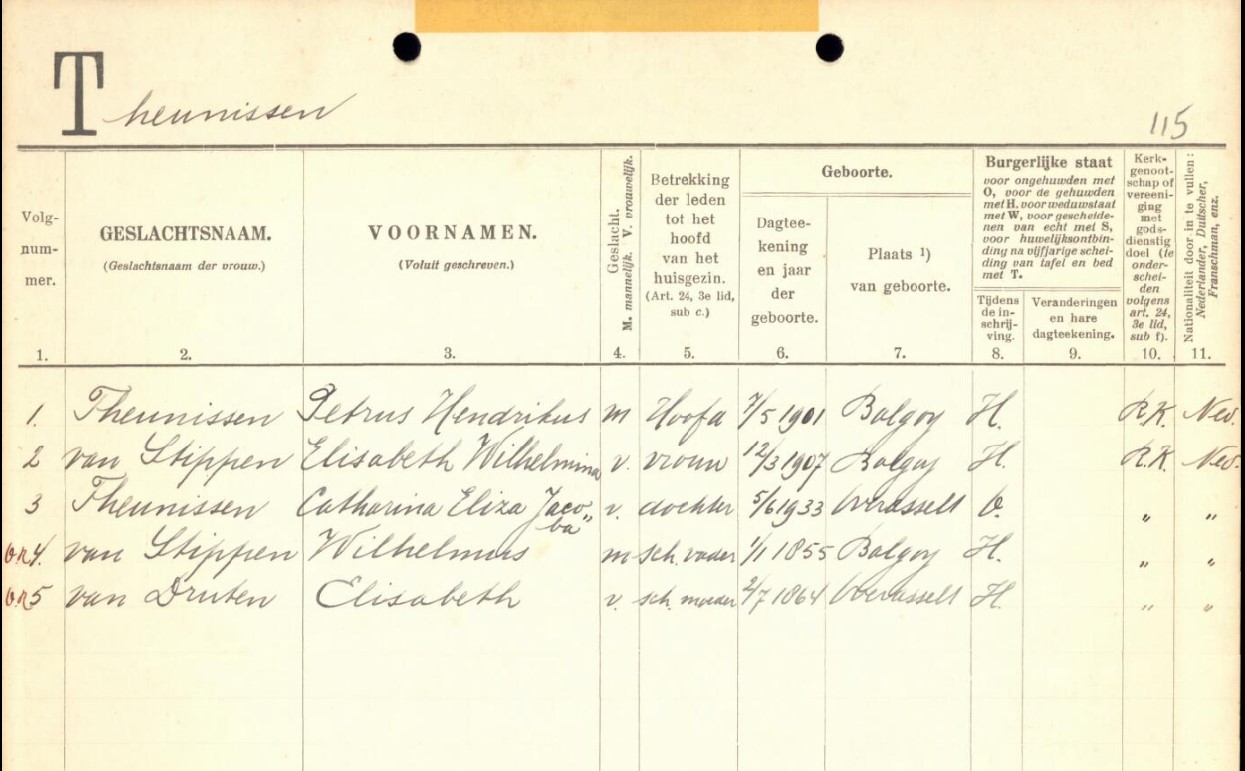 Theunissen
115
Volg-
num-
mer.
1.
GESLACHTSNAAM.
(Geslachtsnaam der vrouw.)
2.
VOORNAMEN.
(Voluit geschreven.)
3.
Geslacht.
M. mannelijk. V. vrouwelijk.
4.
Betrekking
der leden
tot het
hoofd
van het
huisgezin.
(Art. 24, 3e lid,
sub c.)
5.
Geboorte.
Dagtee-
kening
en jaar
der
geboorte.
6.
Plaats ¹)
van geboorte.
7.
Burgerlijke staat
voor ongehuwden met
O, voor de gehuwden
met H. voor weduwstaat
met W, voor gescheide-
nen van echt met S,
voor huwelijksontbin-
ding na vijfjarige schei-
ding van tafel en bed
met T.
Tijdens
de in-
schrij-
ving.
8.
Veranderingen
en hare
dagteekening.
9.
Kerk-
genoot-
schap of
vereeni-
ging
met
gods-
dienstig
doel (te
onder-
schei-
den
volgens
art. 24,
3e lid,
sub f).
10.
Nationaliteit door in te vullen:
Nederlander, Duitscher,
Franschman, enz.
11.
1. Theunissen Petrus Hendrikus m Hoofd 7/5 1901 Balgoy H. R.K. Ned.
2 van Stippen Elisabeth Wilhelmina v. vrouw 12/3 1907 Balgoy H. R.K. Ned.
3 Theunissen Catharina Eliza Jaco„ba v. dochter 5/6 1933 Overasselt O. „ „
4. van Stippen Wilhelmus m sch. vader 1/1 1855 Balgoy H. „ „
5 van Druten Elisabeth v. sch. moeder 2/7 1864 Overasselt H. „ „